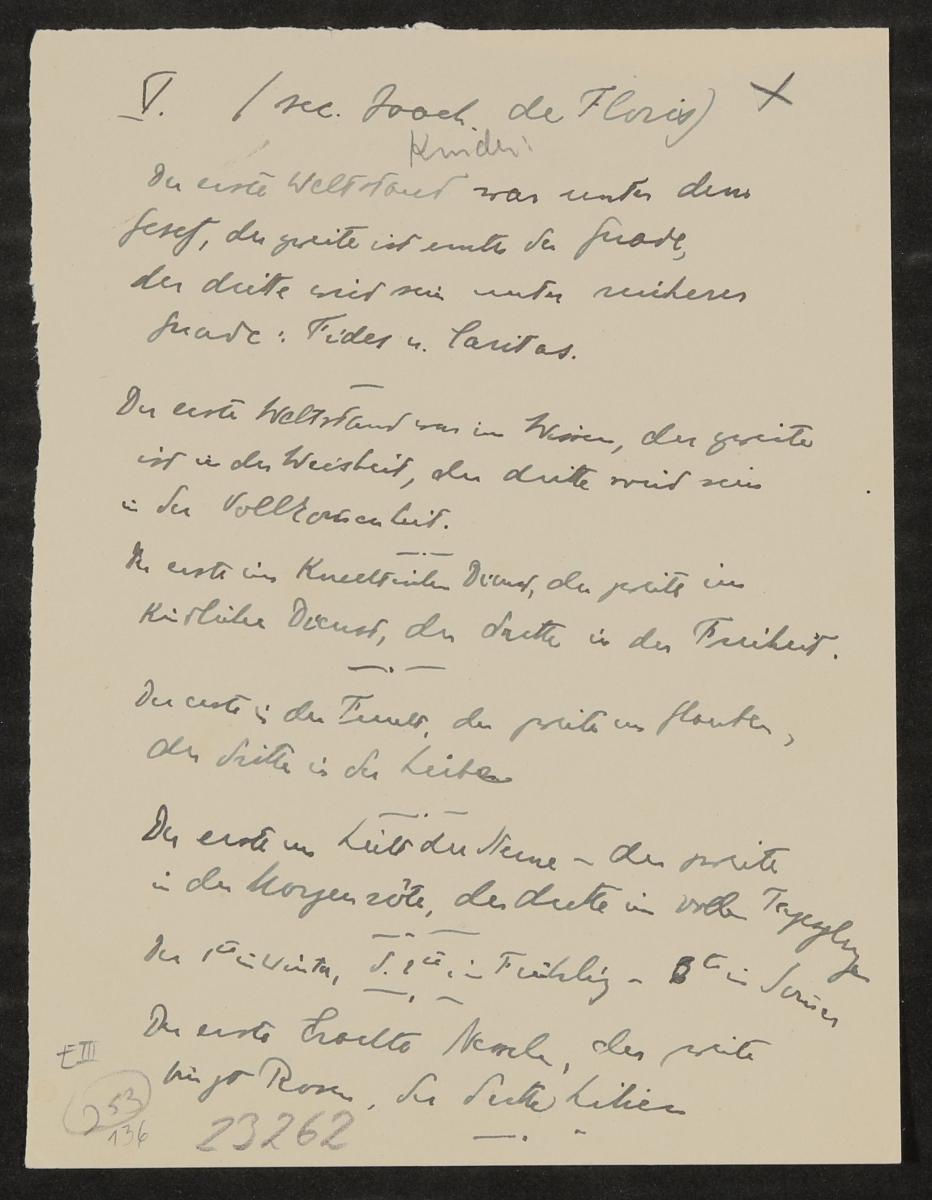 V. (sec. Joach. de Floris) X
Kinder:
Der erste Weltstand war unter dem
Gesetz, der zweite ist unter der Gnade,
der dritte wird sein unter reicherer
Gnade: Fides u. Caritas.
Der erste Weltstand war im Wissen, der zweite
ist in der Weisheit, der dritte wird sein
in der Vollkommenheit.
Der erste im Knechtischen Dienst, der zweite im
Kindlichen Dienst, der dritte in der Freiheit.
Der erste in der Furcht, der zweite im Glauben,
der dritte in der Liebe
Der erste im Licht der Sterne – der zweite
in der Morgenröte, der dritte im vollen
Der 1te im Winter, d. 2te im Frühling – 3te im Sommer
Der erste brachte Nesseln, der zweite
bringt Rosen, der dritte Lilien
t III
253
136
23262